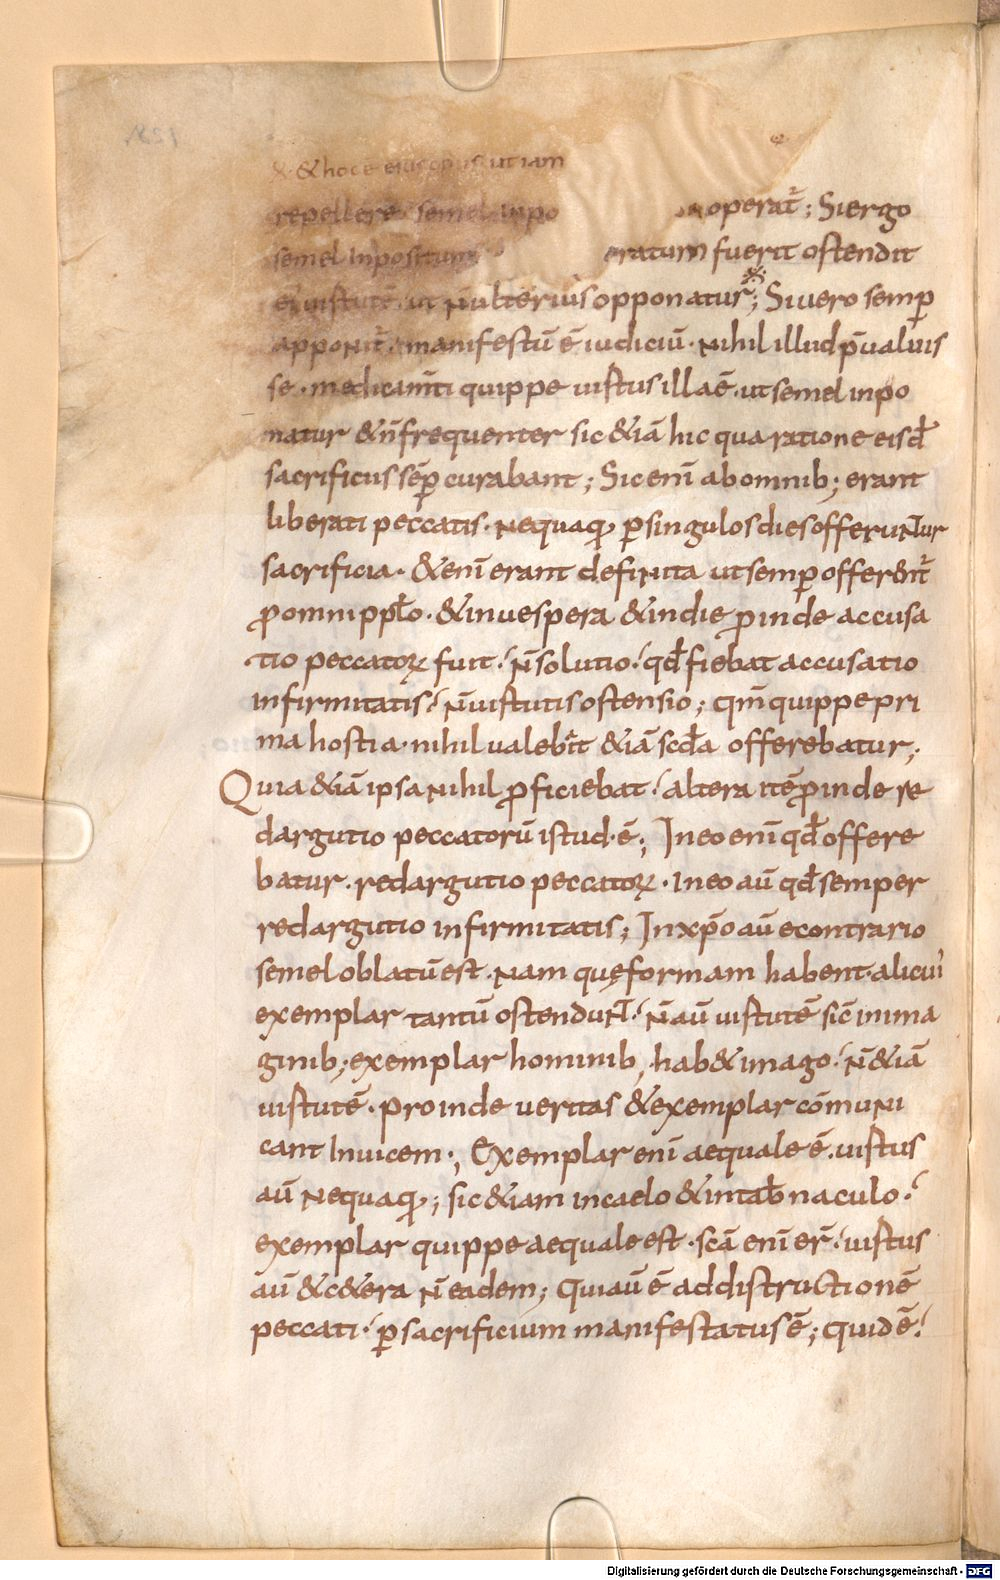 & hoc ē eius opus ut iam
repellere semel inpo operat̄; Si ergo
semel inpositum eratum fuerit ostendit
ei᷒ uirtutē ut n̄ ulterius opponatur; Si uero semp̄
apponit̄ manifestū ē iudiciū · nihil illud p̄ualuis
se · medicam̄ti quippe uirtus illa ē · ut semel inpo
natur & n̄ frequenter sic &iā hic qua ratione eisd̄
sacrificiis sēp̄ curabant; Sic eni̅ ab omnib; erant
liberati peccatis · nequaq; p̄ singulos dies offeruntur
sacrificia · & eni̅ erant definita ut semp̄ offerent̄
p̄ omni pp̄lo · & in uespera & in die p̄inde accusa
tio peccatoꝝ fuit · n̄ solutio · qd̄ fiebat accusatio
infirmitatis · n̄ uirtutis ostensio; qm̄ quippe pri
ma hostia · nihil ualebat &iā scd̄a offerebatur;
Quia &iā ipsa nihil p̄ficiebat · altera itē p̄inde re
dargutio peccatorū istud · ē; In eo eni̅ qd̄ offere
batur · redargutio peccatoꝝ · In eo aū qd̄ semper
redargutio infirmitatis; In xp̄o aū econtrario
semel oblatū est · nam quę formam habent · alicui᷒
exemplar tantū ostendunt · n̄ aū uirtutē sic̄ in ima
ginib; exemplar hominib; hab& imago · n̄ &iā
uirtutē · proinde ueritas & exemplar cōmuni
cant Inuicem; Exemplar eni̅ aequale ē · uirtus
aū nequaq; sic &iam in caelo & in tab̄naculo ·
exemplar quippe aequale est · sc̄a eni̅ er̄ · uirtus
aū & c&era n̄ eadem; Qui aū ē ad distructionē
peccati · p̄ sacrificium manifestatus ē; quid ē ·
Digitalisierung gefördert durch die Deutsche Forschungsgemeinschaft - DFG